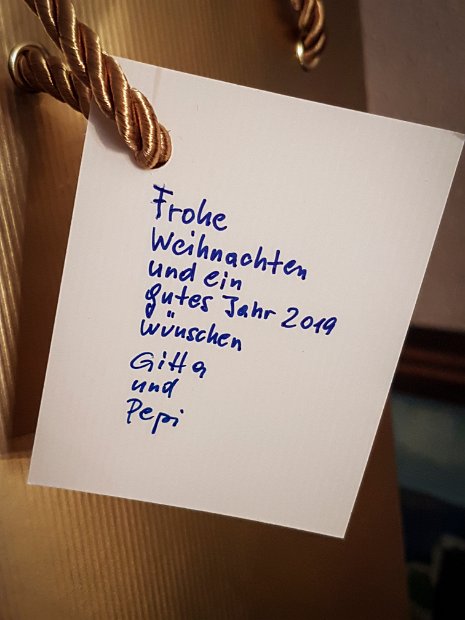 Frohe
Weihnachten
und ein
gutes Jahr 2019
wünschen
Gitta
und
Pepi